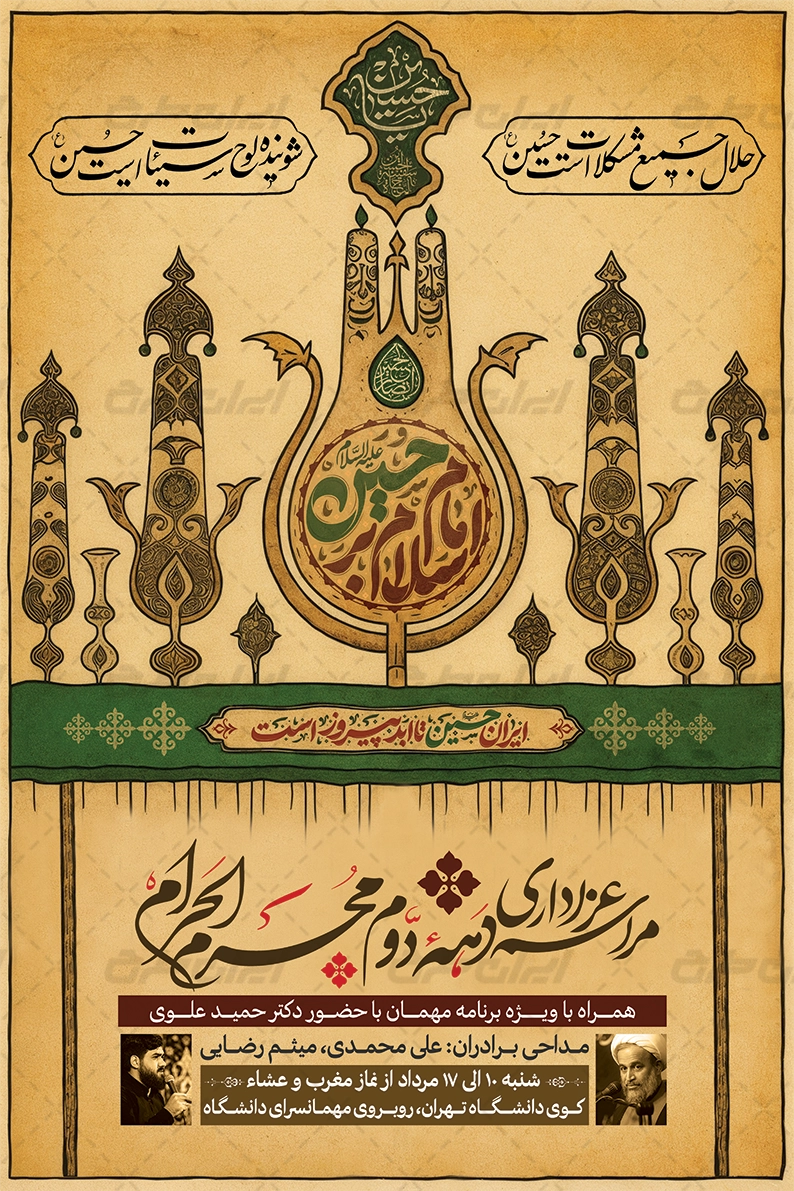 حلال جمیع مشکلات است حسین (ع)
شوینده لوح سیئات است حسین (ع)
امام حسین علیه السلام
ایران حسین تا ابد پیروز است
مراسم عزاداری دههٔ دوّم مُحَرَم الحَرام
همراه با ویژه برنامه مهمان با حضور دکتر حمید علوی
مداحی برادران: علی محمدی، میثم رضایی
شنبه ۱۰ الی ۱۷ مرداد از نماز مغرب و عشاء
کوی دانشگاه تهران، روبروی مهمانسرای دانشگاه
ایران طرح